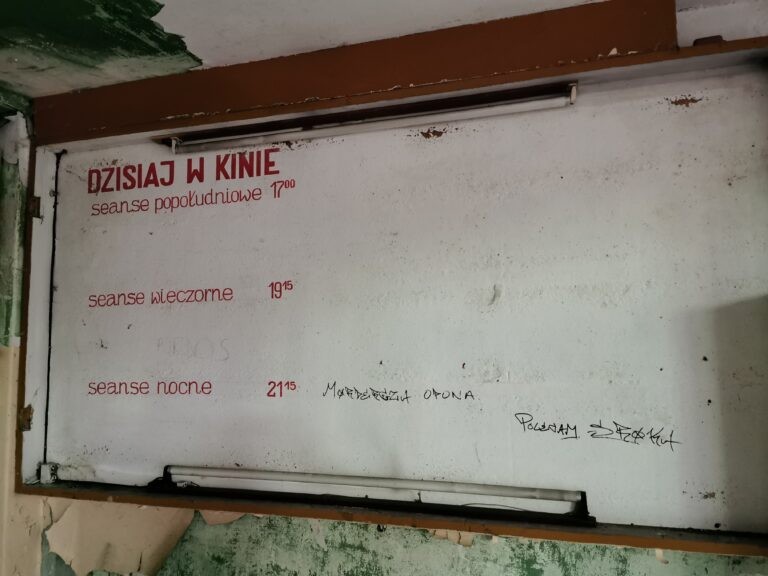 DZISIAJ W KINIE
seanse popołudniowe 17⁰⁰
seanse wieczorne 19¹⁵
seanse nocne 21¹⁵ MORDERCZA OPONA
POLECAM